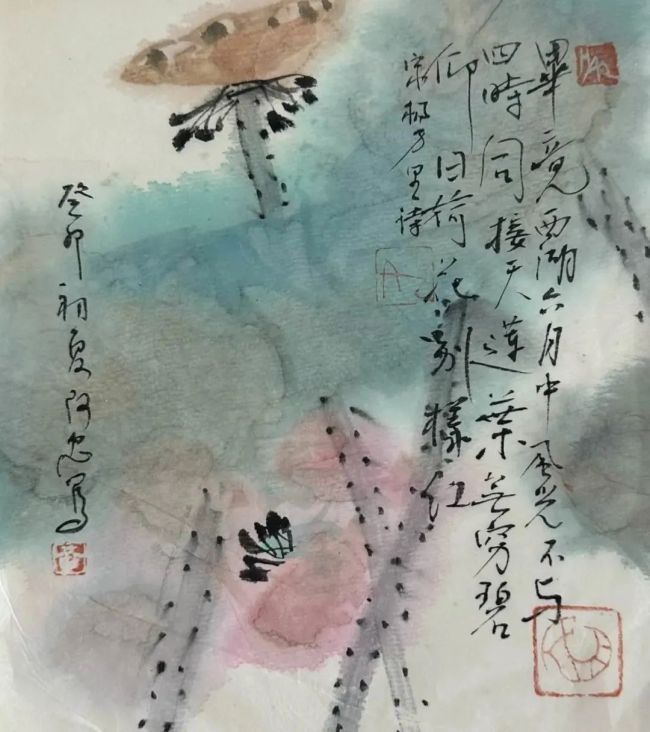 畢竟西湖六月中風光不与
四時同接天蓮葉無窮碧
仰日荷花别樣红
宋楊万里詩
癸卯初夏阿忠写